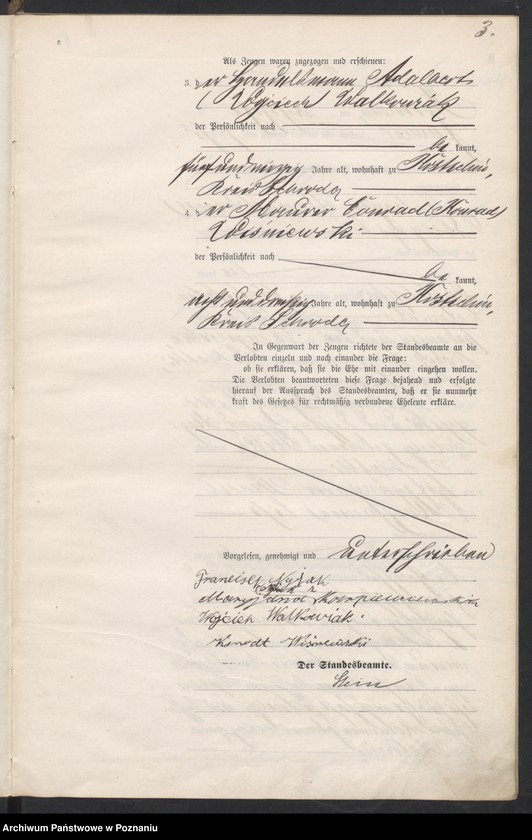 3.
Als Zeugen waren zugezogen und erschienen:
3. der Handelsmann Adalbert
(Wojciech) Walkowiak
der Persönlichkeit nach
be kannt,
fünfundneunzig Jahre alt, wohnhaft zu Kostschin,
Kreis Schroda
4. der Maurer Conrad (Konrad)
Wisniewski
der Persönlichkeit nach
be kannt,
acht und dreißig Jahre alt, wohnhaft zu Kostschin,
Kreis Schroda
In Gegenwart der Zeugen richtete der Standesbeamte an die
Verlobten einzeln und nach einander die Frage:
ob sie erklären, daß sie die Ehe mit einander eingehen wollen.
Die Verlobten beantworteten diese Frage bejahend und erfolgte
hierauf der Ausspruch des Standesbeamten, daß er sie nunmehr
kraft des Gesetzes für rechtmäßig verbundene Eheleute erkläre.
Vorgelesen, genehmigt und unterschrieben
Francisek
Wojciech Walkowiak.
Konradt Wiśniewski
Der Standesbeamte.
Archiwum Państwowe w Poznaniu